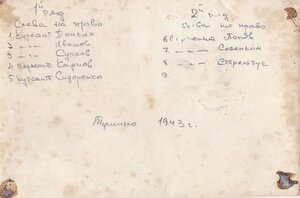 1й ряд
Слева на право
1 Сержант Тонких
2 -"- Иванов
3 -"- Сурков
4 сержант Карпов
5 сержант Сидоренко
2й ряд
слева на право
6 Сержант
7 -"-
8 -"- Стрельчук
9
1943 г.